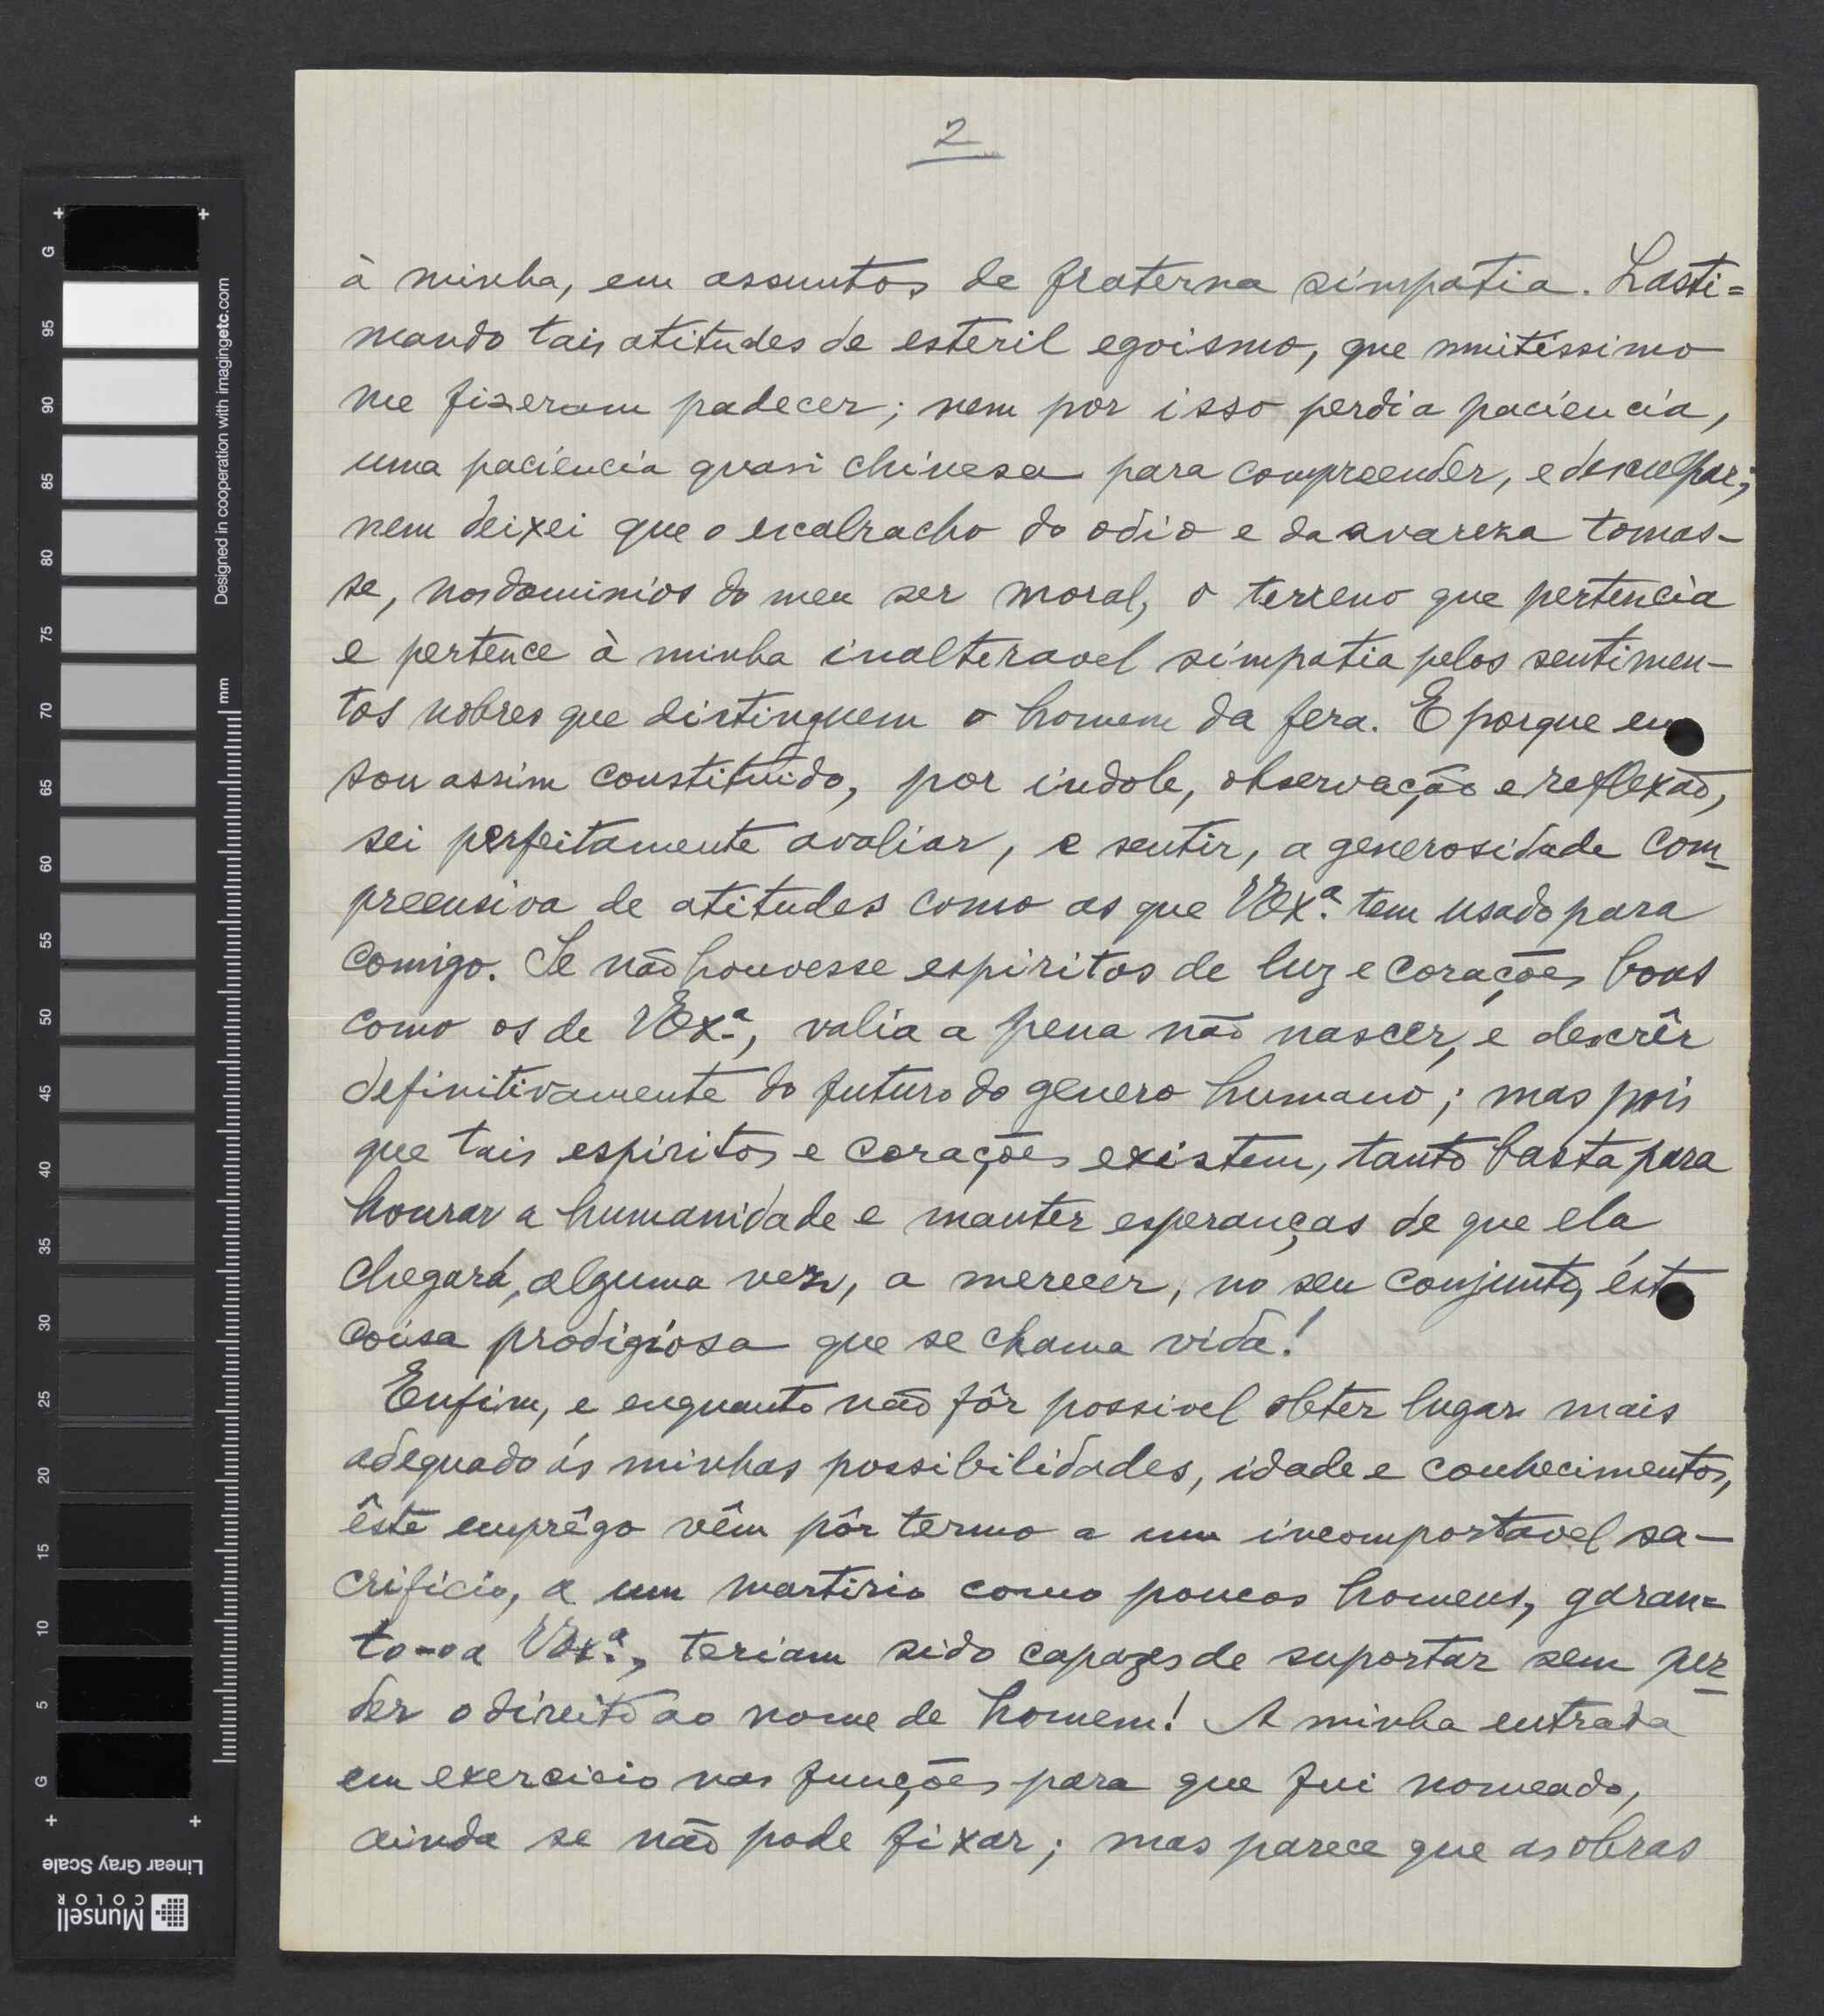 2
à minha, em assuntos de fraterna simpatia. Lasti=
mando tais atitudes de esteril egoismo, que muitissimo
me fizeram padecer; nem por isso perdi a paciencia,
uma paciencia quasi chinesa para compreender, e desculpar;
nem deixei que o escalracho do odio e da avareza tomas-
se, nos dominios do meu ser moral, o terreno que pertencia
e pertence à minha inalteravel simpatia pelos sentimen-
tos nobres que distinguem o homem da fera. E porque eu
sou assim constituido, por indole, observação e reflexão,
sei perfeitamente avaliar, e sentir, a generosidade com-
preensiva de atitudes como as que VExª. tem usado para
comigo. Se não houvesse espiritos de luz e corações bons
como os de VExª., valia a pena não nascer, e descrêr
definitivamente do futuro do genero humano; mas pois
que tais espiritos e corações existem, tanto basta para
honrar a humanidade e manter esperanças de que ela
chegará, alguma vez, a merecer, no seu conjunto, ést
coisa prodigiosa que se chama vida!
Enfim, e enquanto não fôr possivel obter lugar mais
adequado ás minhas possibilidades, idade e conhecimentos,
êste emprêgo vêm pôr termo a um incomportavel sa-
crificio, a um martirio como poucos homens, garan=
to-o a VExª., teriam sido capazes de suportar sem per-
der o direito ao nome de homem! A minha entrada
em exercicio nas funções para que fui nomeado,
ainda se não pode fixar; mas parece que as obras
G
95
90
85
80
75
70
65
60
55
50
45
40
35
30
25
20
15
10
5
G
mm
Designed in cooperation with imagingetc.com
Linear Gray Scale
Munsell
COLOR